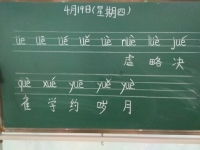 4月19日(星期四)
üe üē üé üě üè nüè lüè jué
虐 略 决
què xué yuē yuě yuè
雀 学 约 哕 月